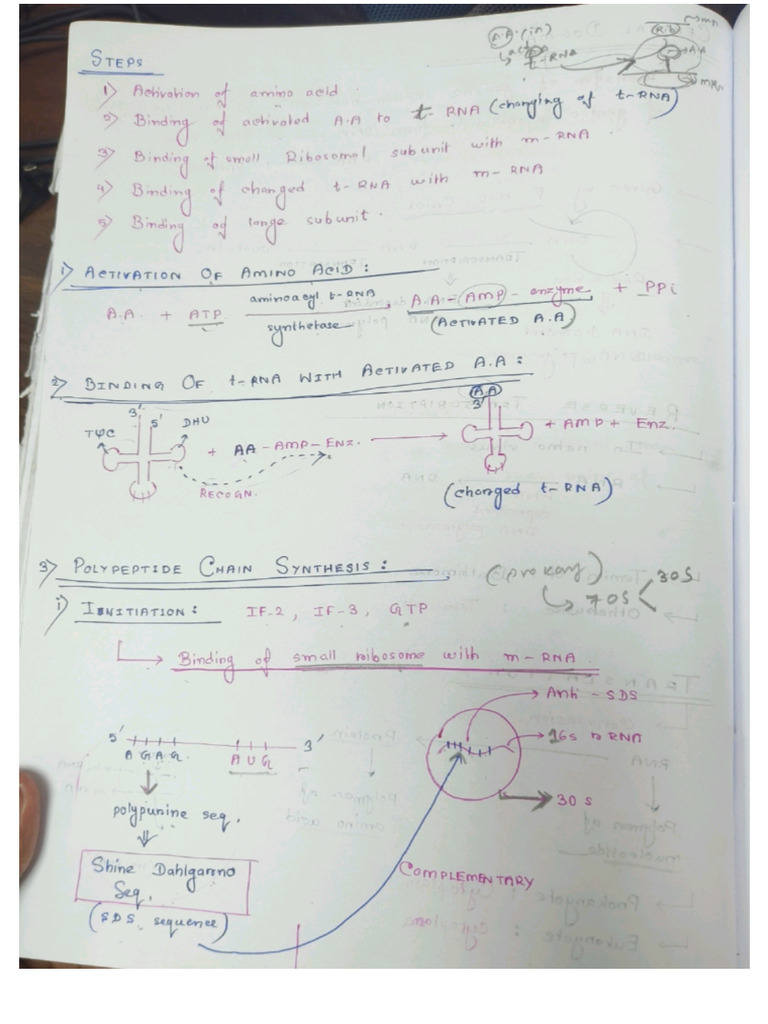 STEPS
A.A. (in)
t-RNA
Rib
A.A
1) Activation of amino acid.
2) Binding of activated A.A to t-RNA (changing of t-RNA)
3) Binding of small Ribosomal subunit with m-RNA.
4) Binding of changed t-RNA with m-RNA
5) Binding of large subunit.
1) ACTIVATION OF AMINO ACID:
A.A. + ATP aminoacyl t-RNA synthetase A.A - AMP - enzyme + PPi
(ACTIVATED A.A)
2) BINDING OF t-RNA WITH ACTIVATED A.A:
3' 5' TΨC DHU + AA - AMP - ENZ. A.A 3' + AMP + Enz.
RECOGN.
(changed t-RNA)
3) POLYPEPTIDE CHAIN SYNTHESIS: (prokary)
70S 30S
i) INITIATION: IF-2, IF-3, GTP
Binding of small ribosome with m-RNA.
Anti - SDS
5' 3'
16s r RNA
A G A G. A U G
30 s
polypurine seq.
Shine Dahlgarno
Seq.
(SDS sequence)
COMPLEMENTARY